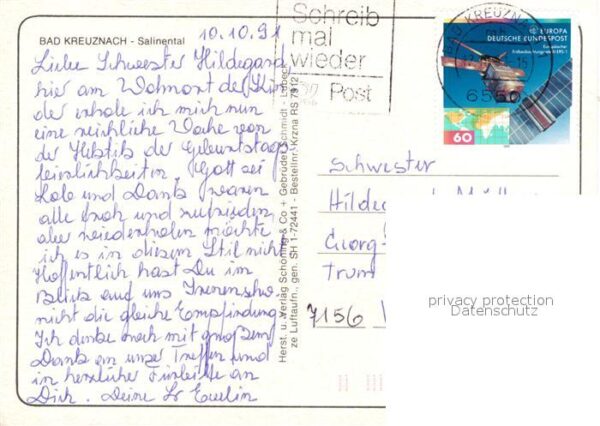 10.10.91
BAD KREUZNACH - Salinental
Liebe Schwester Hildegard
hier am Wohnort der Kin
der erhole ich mich nun
eine reichliche Woche von
der Hektik der Geburtstags
feierlichkeiten. Gott sei
Lob und Dank waren
alle froh und zufrieden
aber wiederholen möchte
ich es in diesem Stil nicht
Hoffentlich hast Du im
Blick auf uns
nicht die gleiche Empfindung
Ich denke noch mit großem
Dank an unser Treffen und
in herzlicher Fürbitte an
Dich. Deine Sr
Schreib
mal
wieder
Post
BAD KREUZNACH
6550
EUROPA
DEUTSCHE BUNDESPOST
60
Herst. u. Verlag Schöning & Co + Gebrüder Schmidt - Lübeck
ze Luftaufn., gen. SH 1-72441 - Bestellnr. Krzna RS 7912
Schwester
Georg-
7156
privacy protection
Datenschutz